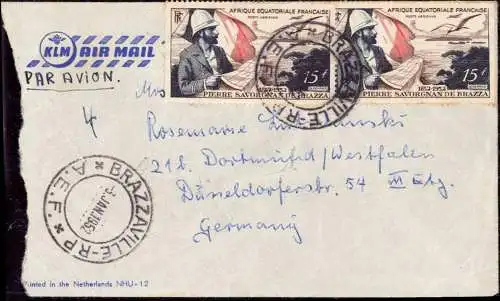 KLM AIR MAIL
PAR AVION.
RF AFRIQUE EQUATORIALE FRANÇAISE
POSTE AERIENNE
15F
1852-1952
PIERRE SAVORGNAN DE BRAZZA
AFRIQUE EQUATORIALE FRANÇAISE
POSTE AERIENNE
15F
1852-1952
PIERRE SAVORGNAN DE BRAZZA
BRAZZAVILLE-RP
A.E.F.
Mrs
4
Rosemarie
21b. Dortmund/Westfalen
Düsseldorferstr. 54 III
Germany
BRAZZAVILLE-RP
A.E.F.
JAN 1952
Printed in the Netherlands NHU-12